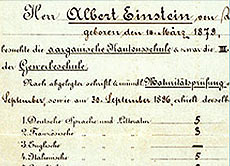 Herr Albert Einstein von
geboren den 14. März 1879,
besuchte die aargauische Kantonsschule & zwar die III.
der Gewerbeschule.
Nach abgelegter schriftl. & mündl. Maturitätsprüfung
September, sowie am 30. September 1896, erhielt derselbe
1. Deutsche Sprache und Litteratur 5
2. Französische " 3
3. Englische " —
4. Italienische " 5